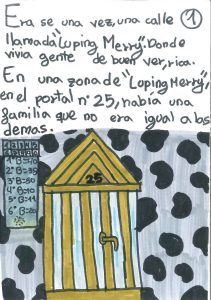 Era se una vez, una calle
1
llamada "Luping Merry". Donde
vivia gente de buen ver, rica.
En una zona de "Luping Merry",
en el portal nº 25, había una
familia que no era igual a las
demas.
25
1º B=10
2º B=35
3º B=50
4º B=10
5º B=11
6º B=20